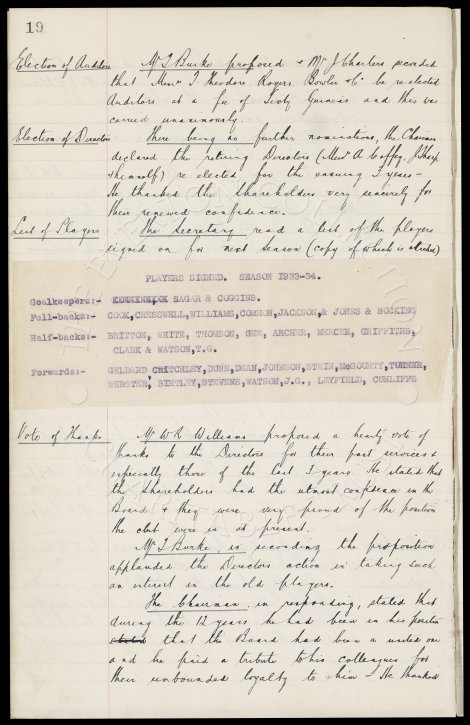 19
Election of Auditors Mr T Burke proposed & Mr J Charters seconded
that Messrs T. Theodore Rogers, Bowler & Co be re elected
Auditors at a fee of Sixty Guineas and this was
carried unanimously.
Election of Directors There being no further nominations, the Chairman
declared the retiring Directors (Messrs A Coffey, J Sharp
& himself) re elected for the ensuing 3 years -
He thanked the shareholders very sincerely for
their renewed confidence.
List of Players The Secretary read a list of the players
signed on for next Season (copy of which is attached)
PLAYERS SIGNED. SEASON 1933-34.
Goalkeepers:- SAGAR & COGGINS.
Full-backs:- COOK, CRESSWELL, WILLIAMS, COMMON, JACKSON, & JONES & BOCKING
Half-backs:- BRITTON, WHITE, THOMSON, GEE, ARCHER, MERCER, GRIFFITHS,
CLARK & WATSON, T.G.
Forwards:- GELDARD CRITCHLEY, DUNN, DEAN, JOHNSON, STEIN, McGOURTY, TURNER,
WEBSTER, BIRTLEY, STEVENS, WATSON, J.G., LEYFIELD, CUNLIFFE
Vote of Thanks Mr W R Williams proposed a hearty vote of
thanks to the Directors for their past services &
especially those of the last 3 years. He stated that
the shareholders had the utmost confidence in the
Board & they were very proud of the position
the club were in at present.
Mr T Burke, in seconding the proposition
applauded the Directors action in taking such
an interest in the old players.
The Chairman in responding, stated that
during the 12 years he had been in his position
stated that the Board had been a united one
and he paid a tribute to his colleagues for
their unbounded loyalty to him - He thanked